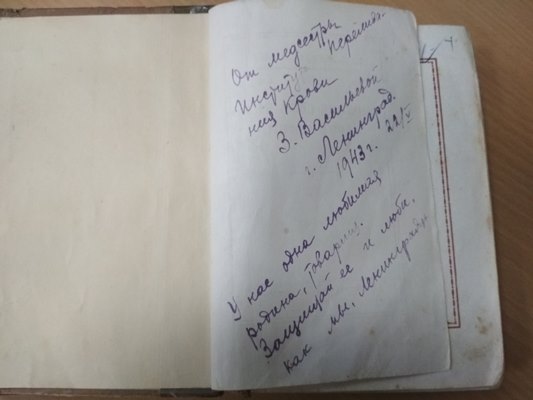 От медсестры
Института Перелива-
ния Крови
З. Васильевой
г. Ленинград.
1943 г. 22/V
У нас одна любимая
родина, товарищ.
Защищай ее и люби,
как мы, Ленинградцы